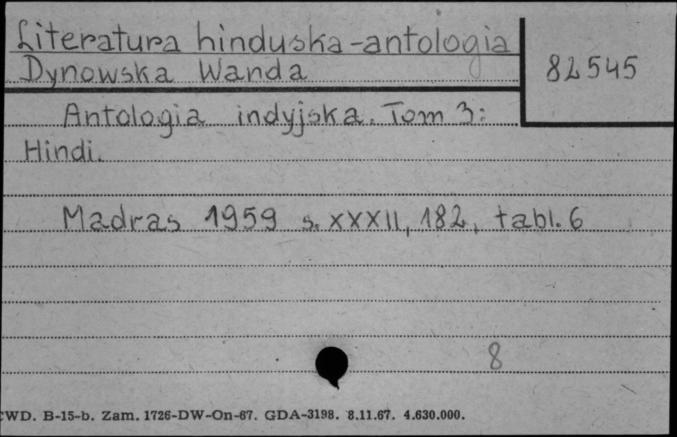 Literatura hinduska-antologia
Dynowska Wanda
82545
Antologia indyjska. Tom 3:
Hindi.
Madras 1959 s. XXXII, 182, tabl. 6
8
CWD. B-15-b. Zam. 1726-DW-On-67. GDA-3198. 8.11.67. 4.630.000.